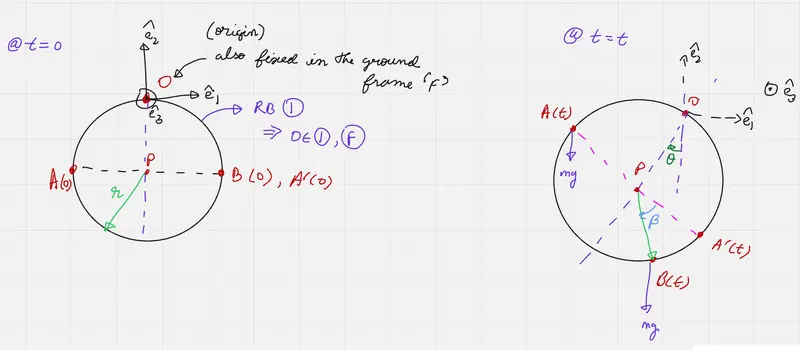 @ t = 0
ê₂
(origin)
O
also fixed in the ground
frame 'F'
ê₁
ê₃
RB ①
⇒ O ∈ ①, Ⓕ
P
A(0)
B(0), A'(0)
r
@ t = t
ê₂
⊙ ê₃
A(t)
O
ê₁
θ
mg
P
β
A'(t)
B(t)
mg